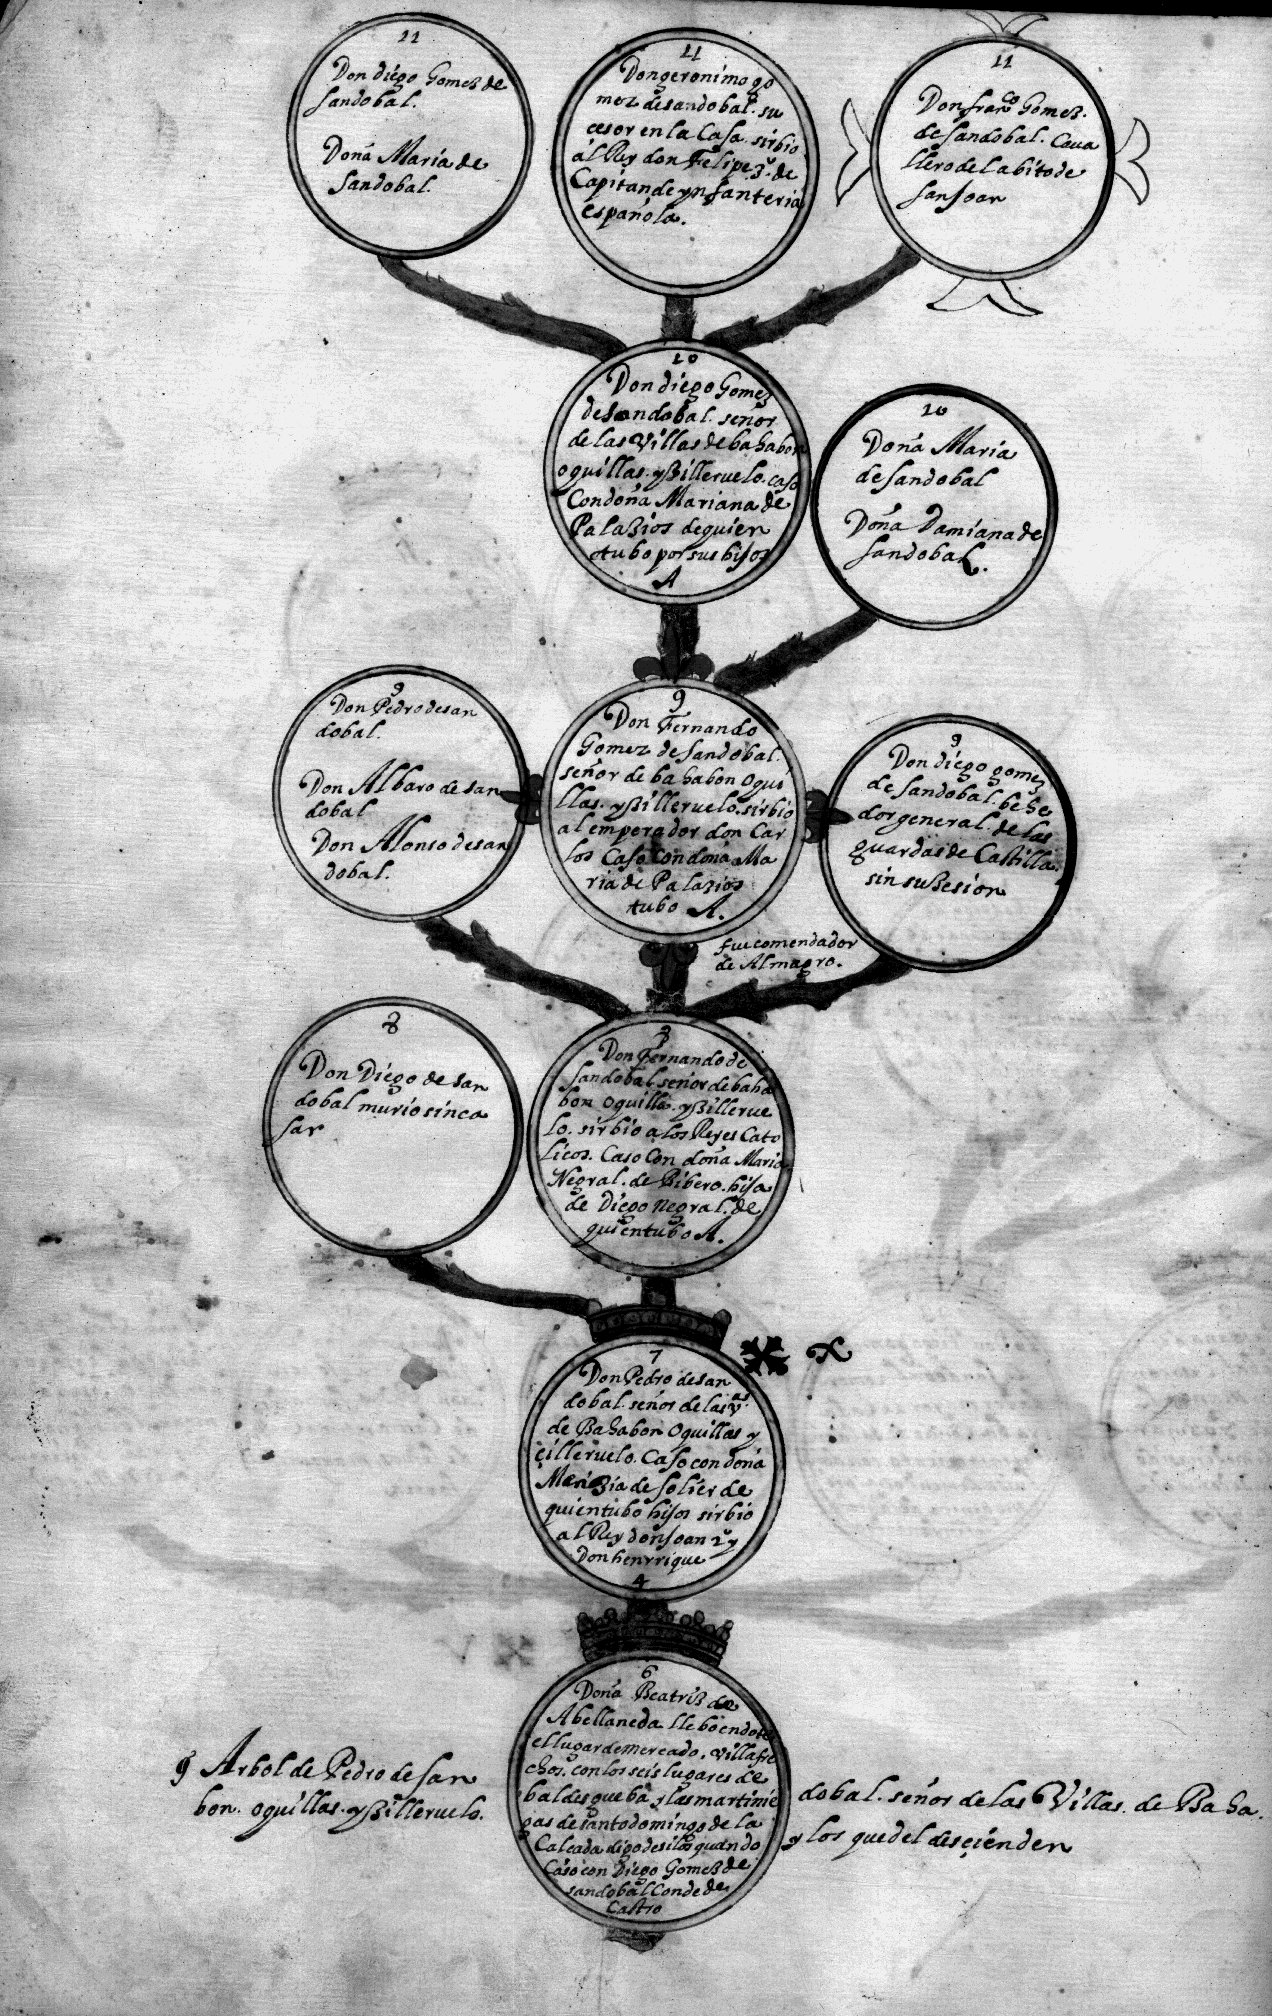 11
Don diego Gomez de
sandobal.
Doña Maria de
sandobal.
11
Don geronimo go
mez de sandobal. su
cesor en la Casa. sirbio
al Rey don Felipe 3º. de
Capitan de ynfanteria
española.
11
Don franco Gomez.
de sandobal. Caua
llero del abito de
san Joan
10
Don diego Gomez
de sandobal. señor
de las Villas de bahabon
oquillas. y Zilleruelo. caso
Con doña Mariana de
Palazios de quien
tubo por sus hijos
A
10
Doña Maria
de sandobal
Doña Damiana de
sandobal.
9
Don Pedro de san
dobal.
Don Albaro de san
dobal
Don Alonso de san
dobal.
9
Don Fernando
Gomez de sandobal.
señor de bahabon oqui
llas. y Zilleruelo. sirbio
al emperador don Car
los Caso Con doña Ma
ria de Palazios
tubo A.
9
Don diego gomez
de sandobal. behe
dor general. de las
guardas de Castilla.
sin suzesion
fue comendador
de Almagro.
8
Don Diego de san
dobal murio sin ca
sar
8
Don Fernando de
sandobal señor de baha
bon oquillas. y Zillerue
lo. sirbio a los Reyes Cato
licos. Caso Con doña Maria
Negral. de Bibero. hija
de Diego negral. de
quien tubo A.
7
Don Pedro de san
dobal. señor de las vas.
de Bahabon Oquillas y
çilleruelo. Caso con doña
de solier de
quien tubo hijos sirbio
al Rey don Joan 2º y
Don henrrique
4
6
Doña Beatriz de
Abellaneda llebo en dote
el lugar de mercado. villafre
chos. con los seis lugares de
baldesgueba y las martinie
gas de santo domingo de la
Calcada digo de silos quando
Caso con Diego Gomez de
sandobal Conde de
Castro
Arbol de Pedro de san dobal. señor de las Villas. de Baha.
bon. oquillas. y Zilleruelo. y los que del desçienden